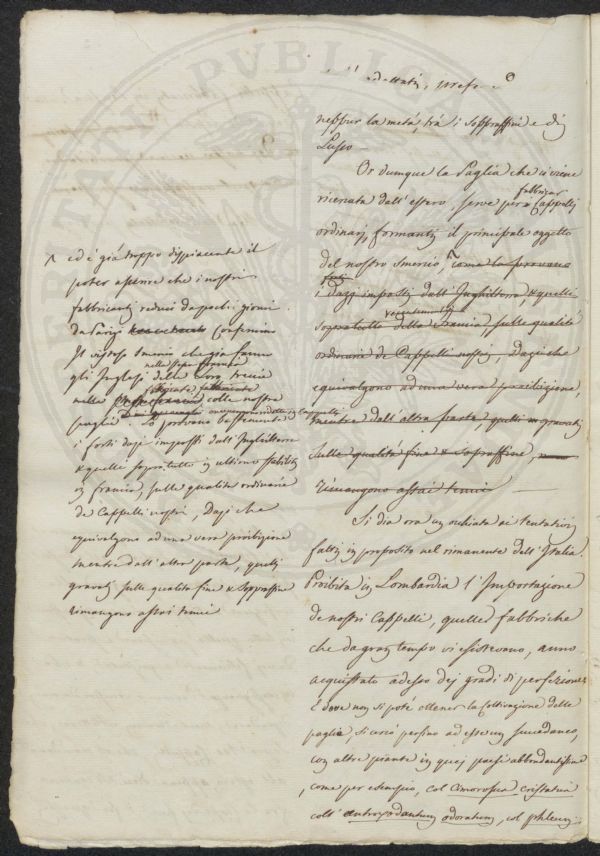 neppur la metà, trà i Soppraffini e di
Lusso
Or dunque la Paglia che ci viene
ricercata dall'estero, serve per a fabbricar Cappelli
ordinarj, formanti il principale oggetto
del nostro smercio, come lo provano
i Dazj imposti dall'Inghilterra & quelli
sopratutto della Francia, sulle qualità
ordinarie de Cappelli nostri, Dazi che
equivalgono ad una vera proibizione,
mentre dall'altra parte, quelli gravanti
sulle qualità fine & Sopraffine,
rimangono assai tenui
Si dia ora un occhiata ai tentativi
fatti in proposito nel rimanente dell'Italia.
Proibita in Lombardia l'Importazione
de nostri Cappelli, quelle fabbriche
che da gran tempo vi esistevano, anno
acquistato adesso dei gradi di perfezione
E dove non si poté ottener la Coltivazione delle
paglie, si cercò persino ad esse un succedaneo,
con altre piante in quei paesi abbondantissime
, come per esempio, col Cimorosus cristatus
coll' antropodantum odoratum, col phleum
ed è già troppo dispiacente il
poter asserire che i nostri
fabbricanti reduci da pochi giorni
da Parigi
il vistoso smercio che già fanno
gli Inglesi delle loro treccie
nella colle nostre
paglie. Lo provano bastantemente
i forti dazj imposti dall'Inghilterra
& quelli sopratutto in ultimo stabiliti
in Francia, sulle qualità ordinarie
de Cappelli nostri, Dazj che
equivalgono ad una vera proibizione
mentre dall'altra parte, quelli
gravanti sulle qualità fine & Soppraffine
rimangono assai tenui